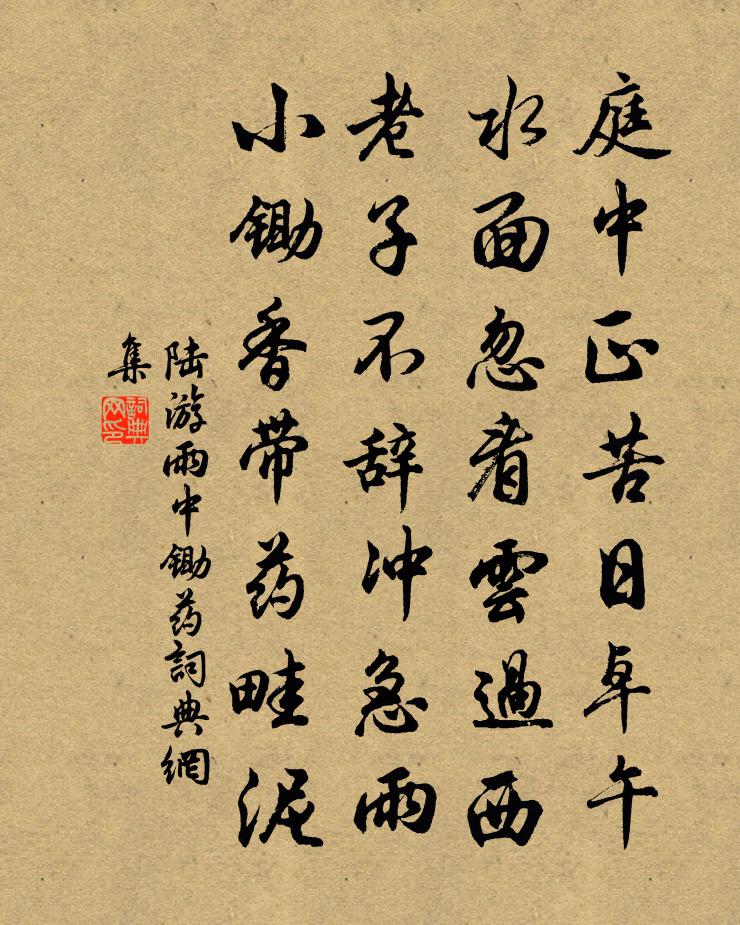 庭中正苦日卓午
水面忽看雲過西
老子不辞冲急雨
小锄香带药畦泥
陆游雨中锄药詞典網
集
詞典
网印